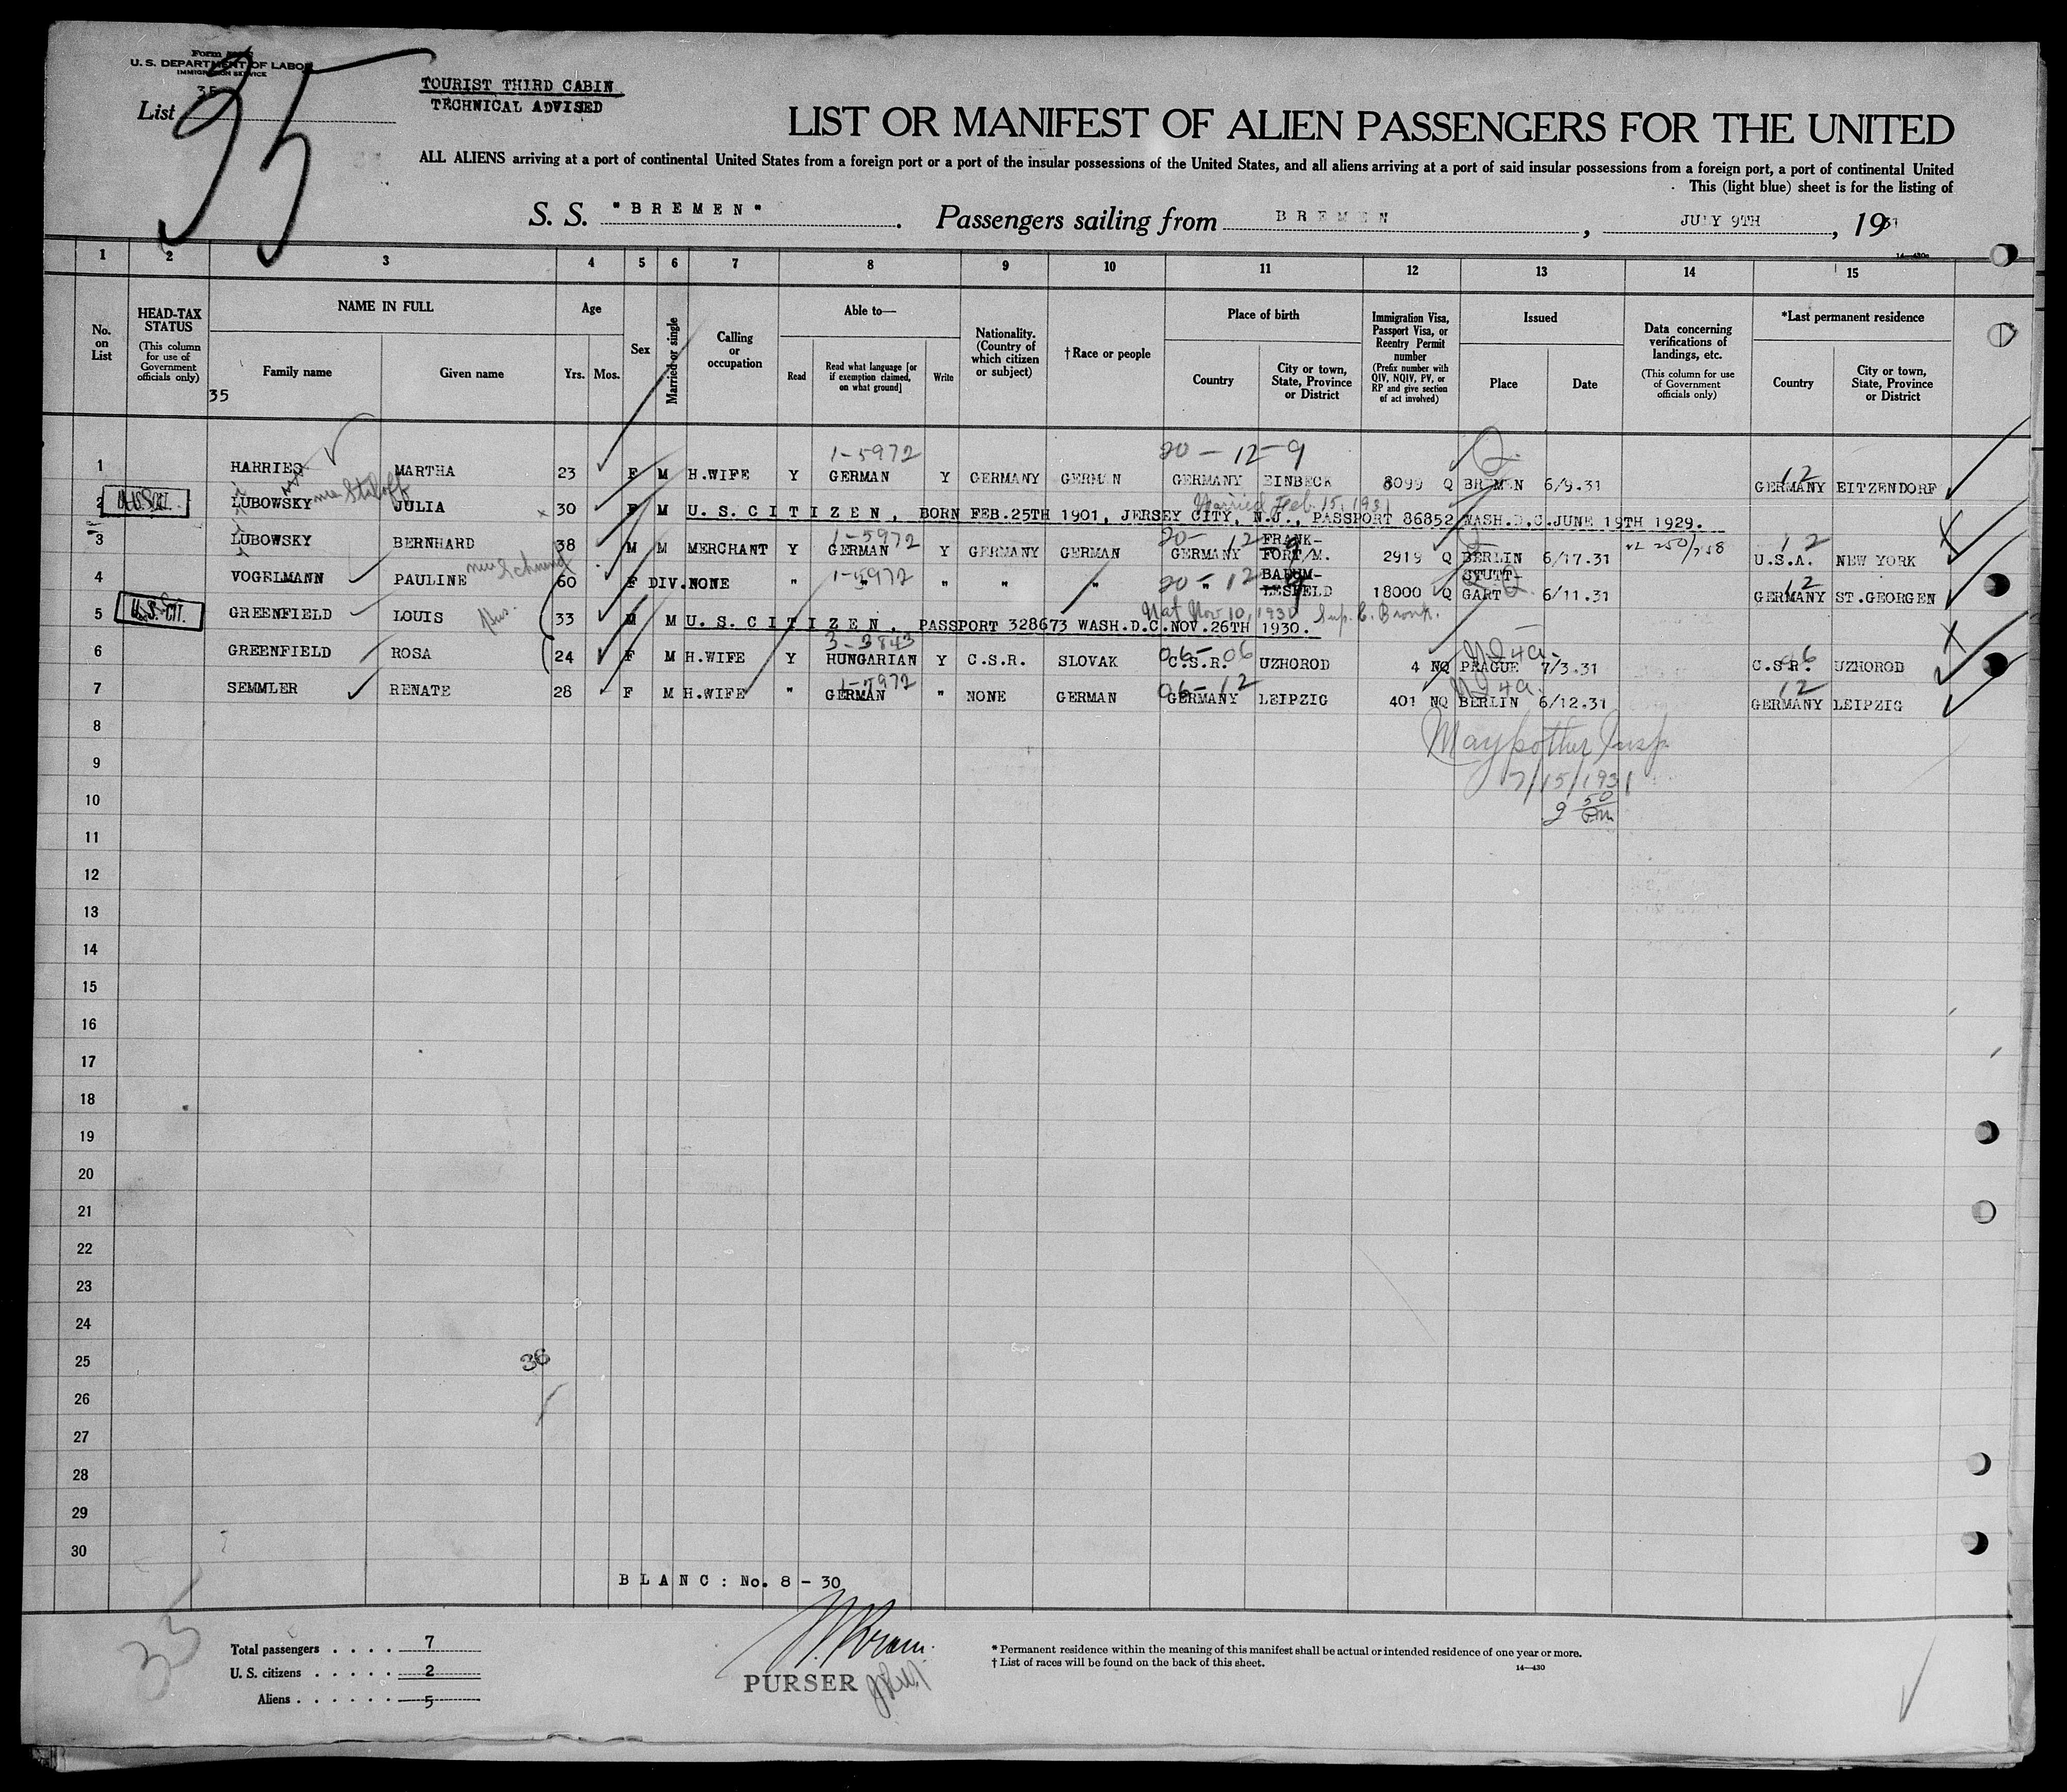 Form
U. S. DEPARTMENT OF LABOR
IMMIGRATION SERVICE
35
List
35
TOURIST THIRD CABIN
TECHNICAL ADVISED
LIST OR MANIFEST OF ALIEN PASSENGERS FOR THE UNITED
ALL ALIENS arriving at a port of continental United States from a foreign port or a port of the insular possessions of the United States, and all aliens arriving at a port of said insular possessions from a foreign port, a port of continental United
This (light blue) sheet is for the listing of
S. S. "BREMEN". Passengers sailing from BREMEN, JULY 9TH, 1931
14—430c
1 2 3 4 5 6 7 8 9 10 11 12 13 14 15
No. on List
HEAD-TAX STATUS
(This column for use of Government officials only)
NAME IN FULL
Family name
Given name
35
Age
Yrs. Mos.
Sex
Married or single
Calling or occupation
Able to—
Read
Read what language [or if exemption claimed, on what ground]
Write
Nationality. (Country of which citizen or subject)
†Race or people
Place of birth
Country
City or town, State, Province or District
Immigration Visa, Passport Visa, or Reentry Permit number
(Prefix number with QIV, NQIV, PV, or RP and give section of act involved)
Issued
Place
Date
Data concerning verifications of landings, etc.
(This column for use of Government officials only)
*Last permanent residence
Country
City or town, State, Province or District
1-5972 20-12-9 Q. 12
1 HARRIES MARTHA 23 F M H.WIFE Y GERMAN Y GERMANY GERMAN GERMANY EINBECK 8099 Q BREMEN 6/9.31 GERMANY EITZENDORF
Married Feb. 15, 1931
2 U.S. CIT. LUBOWSKY JULIA x 30 F M U. S. CITIZEN, BORN FEB.25TH 1901, JERSEY CITY, N.J., PASSPORT 86852 WASH.D.C.JUNE 19TH 1929.
1-5972 20-12 9 12
3 LUBOWSKY BERNHARD 38 M M MERCHANT Y GERMAN Y GERMANY GERMAN GERMANY FRANK-FORT/M. 2919 Q BERLIN 6/17.31 U.S.A. NEW YORK
nee Schmid 1-5972 20-12 9 Q. 12
4 VOGELMANN PAULINE 60 F DIV. NONE " " " " " " BABUM-LESFELD 18000 Q STUTT-GART 6/11.31 GERMANY ST.GEORGEN
Nat Nov 10, 1930 Sup. C. Bronx.
5 U.S. CIT. GREENFIELD LOUIS 33 M M U. S. CITIZEN, PASSPORT 328673 WASH.D.C.NOV.26TH 1930.
3-3843 06-06 6
6 GREENFIELD ROSA 24 F M H.WIFE Y HUNGARIAN Y C.S.R. SLOVAK C.S.R. UZHOROD 4 NQ PRAGUE 7/3.31 C.S.R. UZHOROD
1-5972 06-12 12
7 SEMMLER RENATE 28 F M H.WIFE " GERMAN " NONE GERMAN GERMANY LEIPZIG 401 NQ BERLIN 6/12.31 GERMANY LEIPZIG
8
9
7/15/1931
10
11
12
13
14
15
16
17
18
19
20
21
22
23
24
25
36
26
27
28
29
30
BLANC: No. 8 - 30
35
Total passengers . . . . 7
U. S. citizens . . . . . 2
Aliens . . . . . . 5
PURSER
* Permanent residence within the meaning of this manifest shall be actual or intended residence of one year or more.
† List of races will be found on the back of this sheet.
14—430